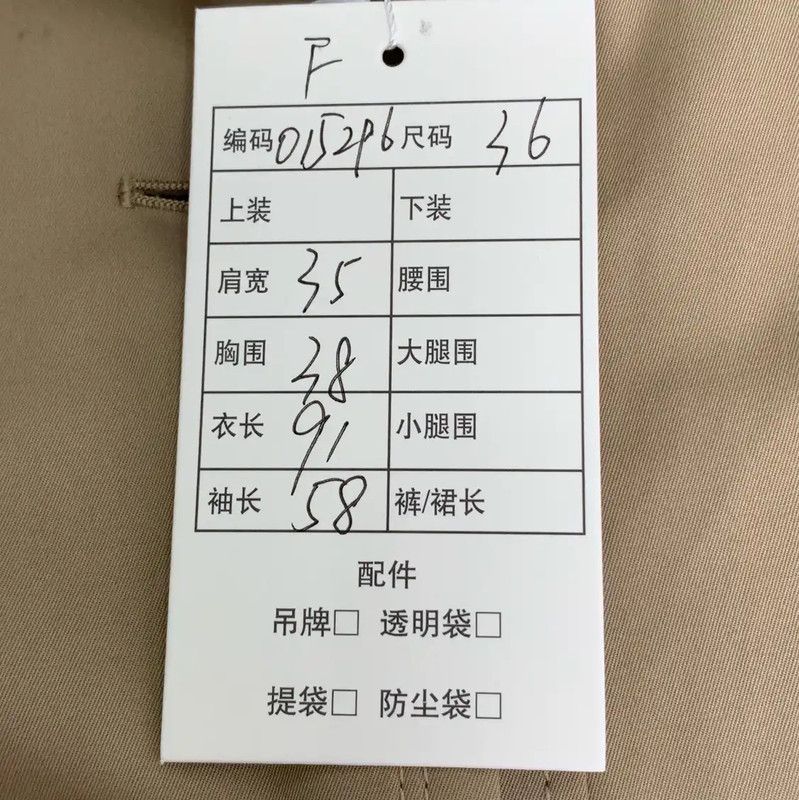 F
编码 015296 尺码 36
上装 下装
肩宽 35 腰围
胸围 38 大腿围
衣长 91 小腿围
袖长 58 裤/裙长
配件
吊牌□ 透明袋□
提袋□ 防尘袋□